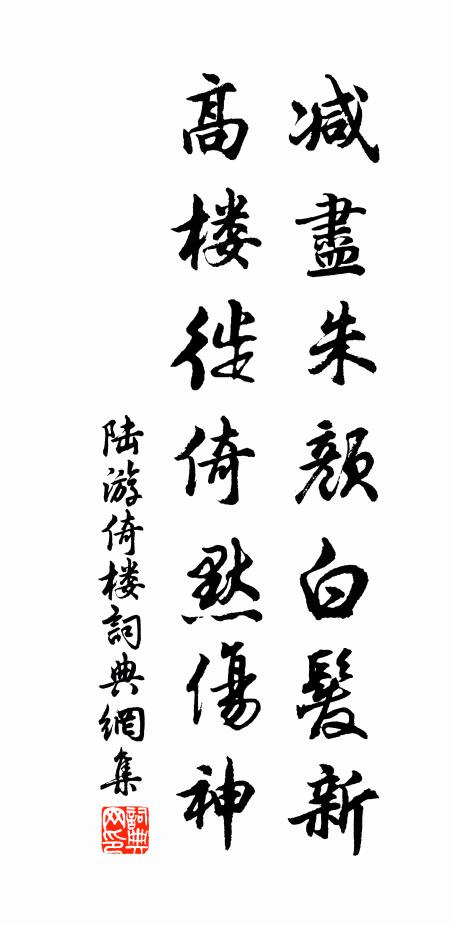 减盡朱顔白髮新
高楼徙倚黙傷神
陆游倚楼詞典網集
詞典网印